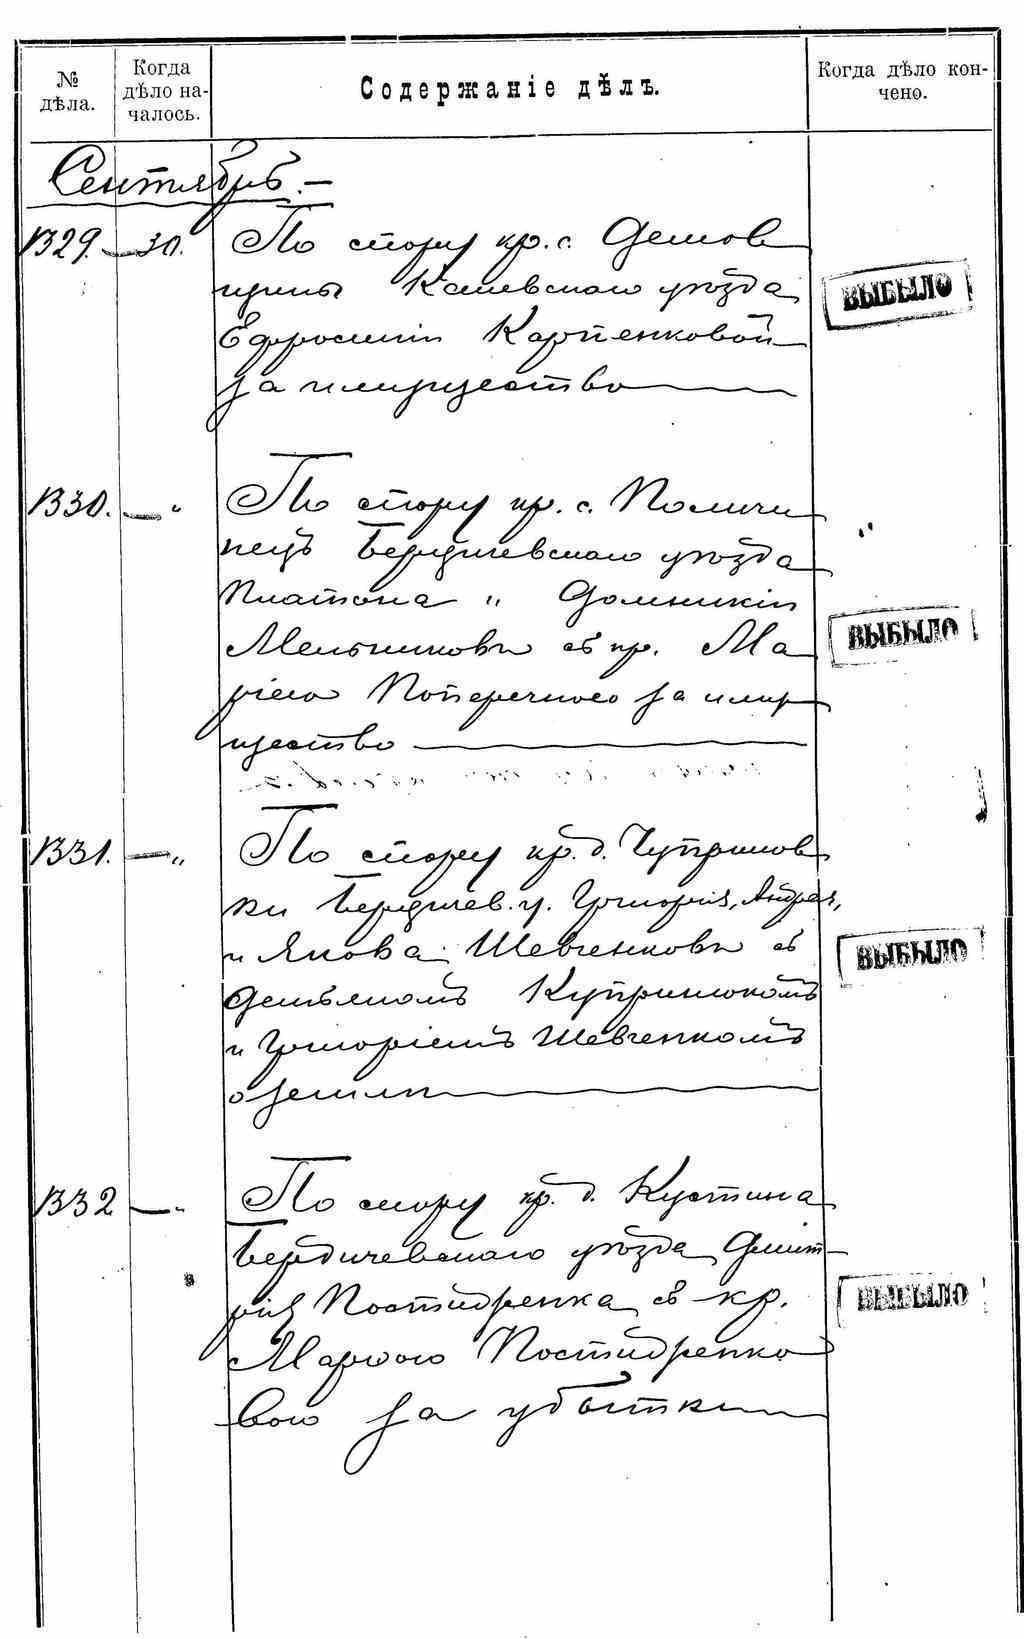 № дѣла.
Когда дѣло началось.
Содержаніе дѣлъ.
Когда дѣло кончено.
Сентябрь.—
1329. — 30. По спору кр. с. Демов
щины Каневскаго уѣзда
Ефросиніи Карпенковой
за имущество
ВЫБЫЛО
1330. — " По спору кр. с. Поличи
нецъ Бердичевскаго уѣзда
Платона и Домникіи
Мельниковы съ кр. Ма
ріею Поперечною за иму
щество
ВЫБЫЛО
1331. — " По спору кр. д. Чуприновки
ки Бердичев. у. Григорія, Андрея,
и Якова Шевченковы съ
Демьяномъ Куприкомъ
и Григоріемъ Шевченкомъ
о землѣ
ВЫБЫЛО
1332 — " По спору кр. д. Кустина
Бердичевскаго уѣзда Дмит
рія Постидренка съ кр.
Марѳою Постидренко
вою за убытки
ВЫБЫЛО